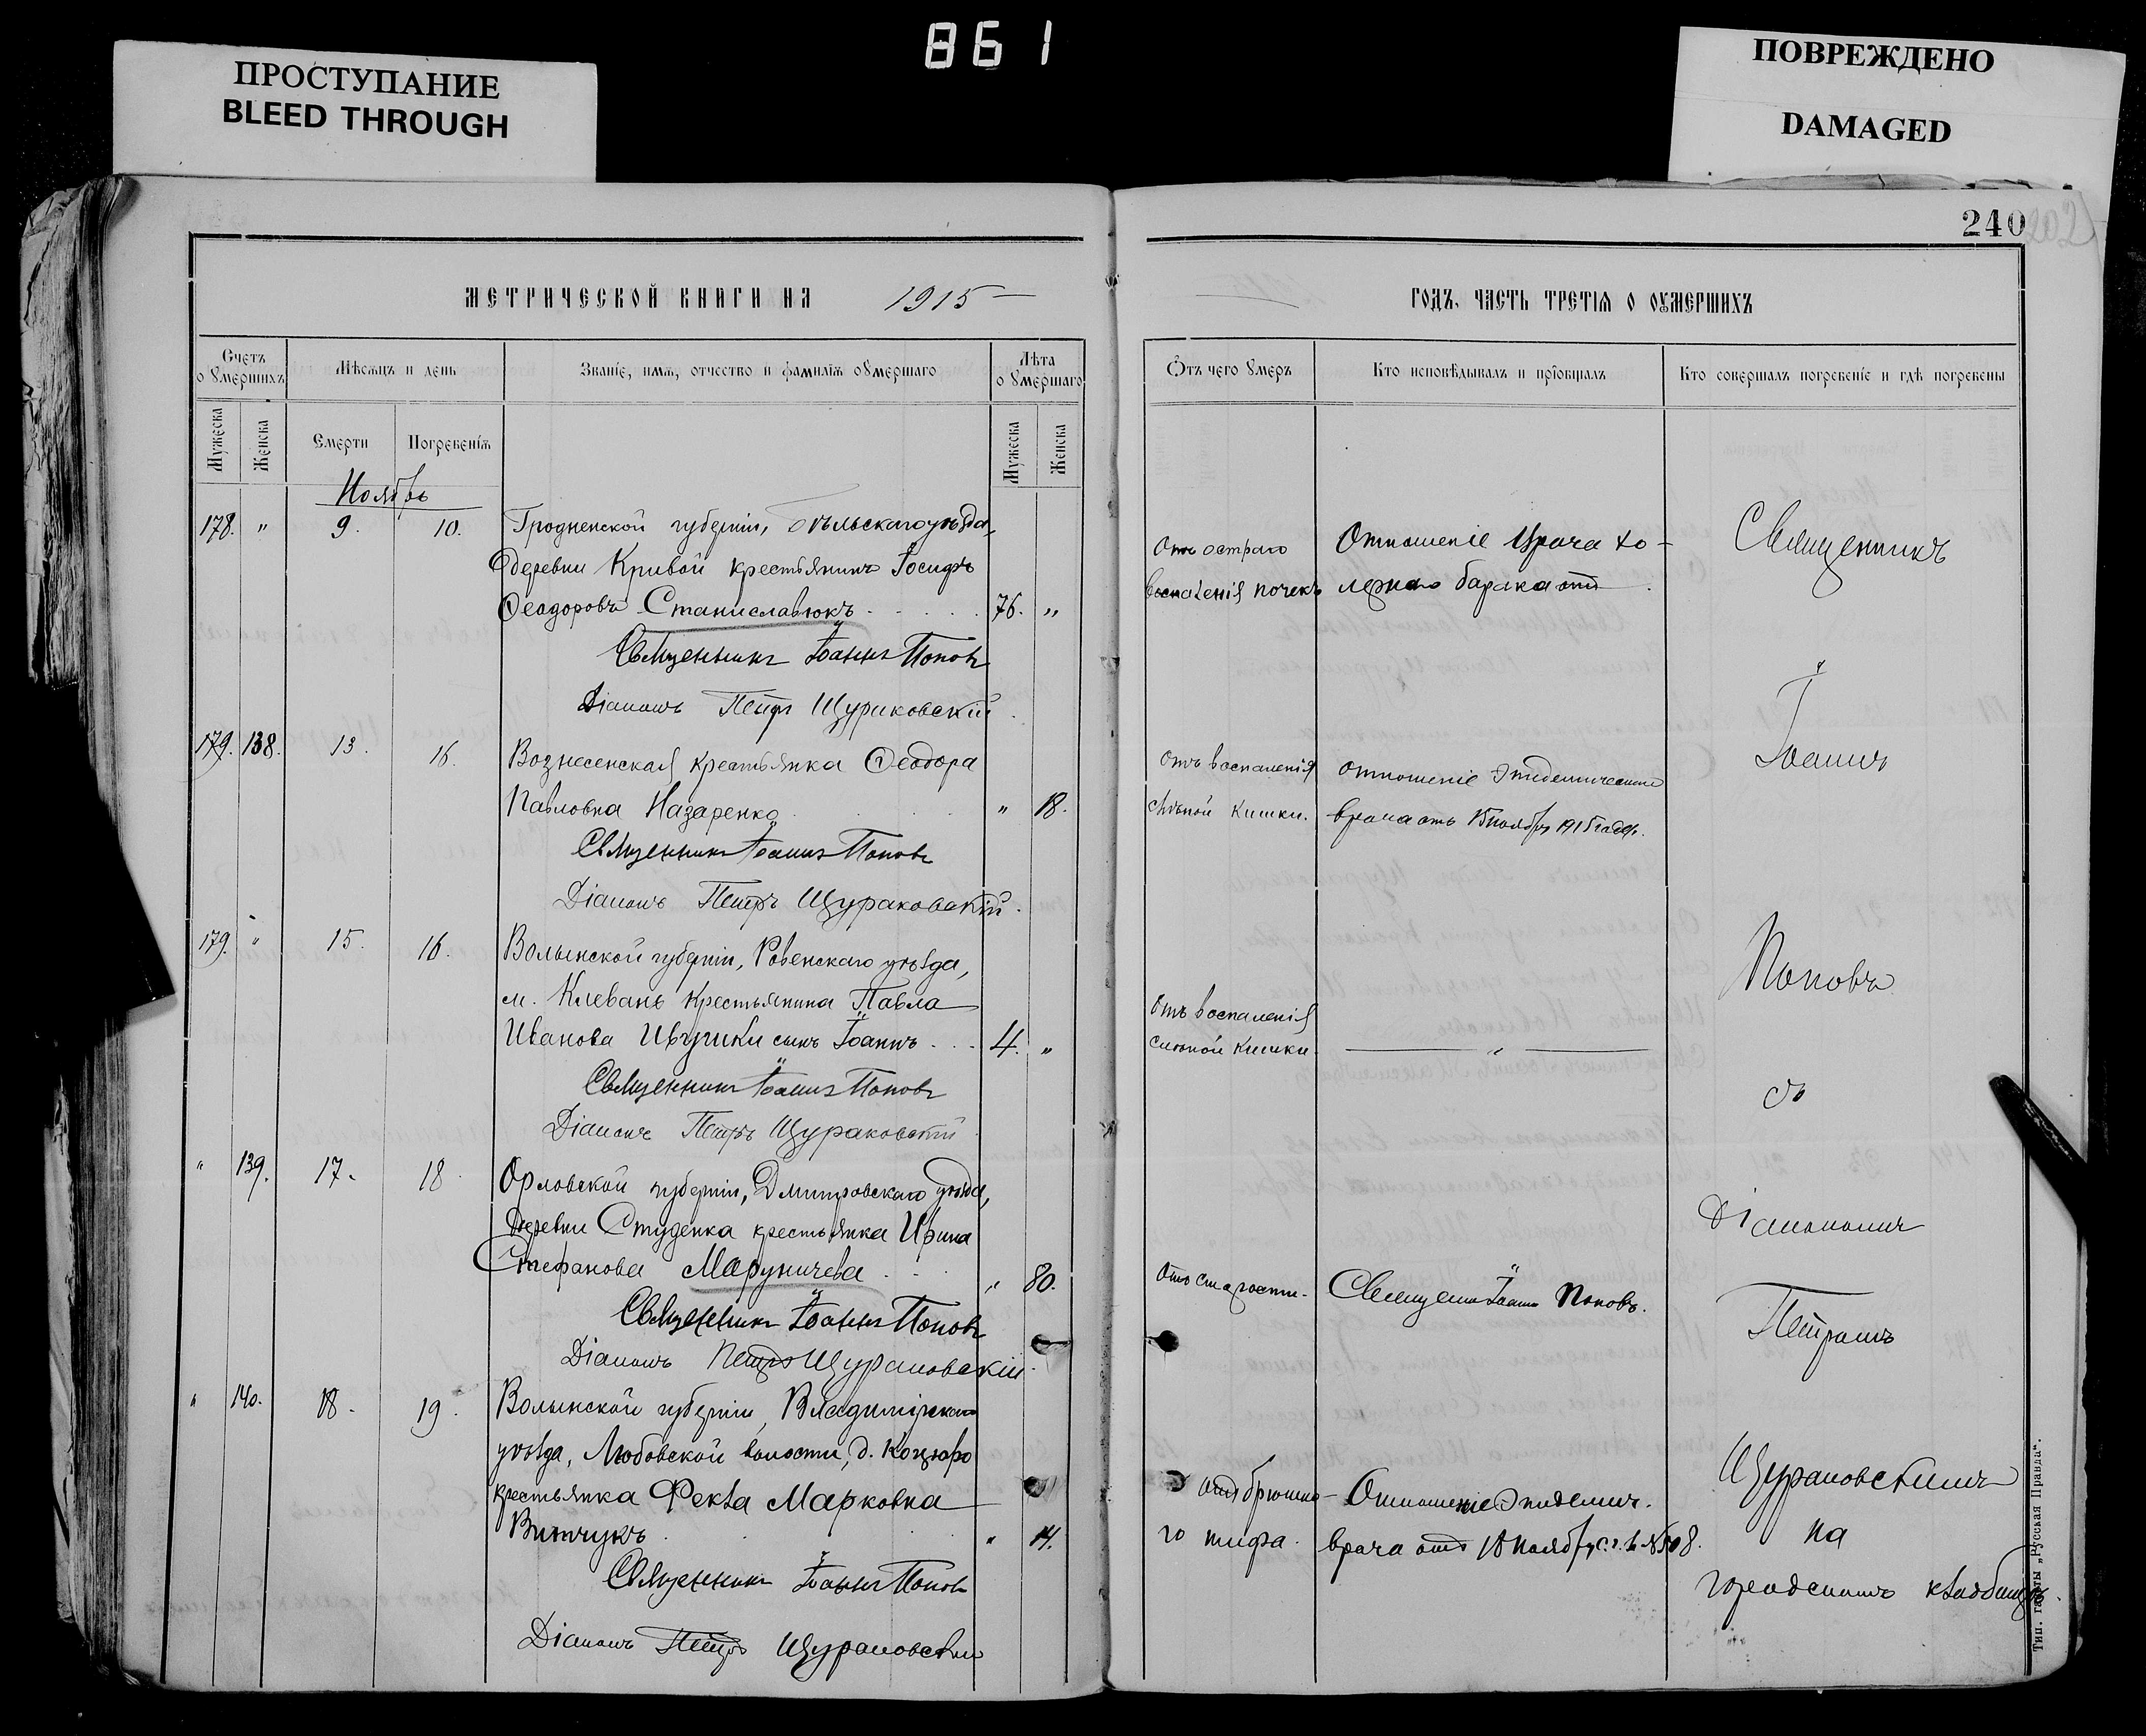 861
ПРОСТУПАНИЕ
BLEED THROUGH
ПОВРЕЖДЕНО
DAMAGED
240
202
МЕТРИЧЕСКОЙ КНИГИ НА 1915
ГОДЪ, ЧАСТЬ ТРЕТІѦ О ОУМЕРШИХЪ
Счетъ о Ꙋмершихъ
Мѣсѧцъ и день
Званіе, имѧ, отчество и фамиліѧ оꙊмершаго
Лѣта о Ꙋмершаго
Ѿтъ чего Ꙋмеръ
Кто исповѣдывалъ и пріобщалъ
Кто совершалъ погребеніе и гдѣ погребены
Мужеска
Женска
Смерти
Погребеніѧ
Мужеска
Женска
Ноябрь
178. " 9. 10. Гродненской губерніи, Бѣльскаго уѣзда,
деревни Кривой крестьянинъ Іосифъ
Ѳеодоровъ Станиславюкъ 76. "
Отъ остраго
воспаленія почекъ
Отношеніе Врача хо-
лернаго барака отъ
Священникъ Іоаннъ Поповъ
Діаконъ Петръ Щураковскій
179. 138. 13. 16. Вознесенская крестьянка Ѳеодора
Павловна Назаренко " 18.
Отъ воспаленія
слѣпой кишки.
Отношеніе Эпидемическаго
врача отъ 15 ноября 1915 года.
Священникъ Іоаннъ Поповъ
Діаконъ Петръ Щураковскій.
179. " 15. 16. Волынской губерніи, Ровенскаго уѣзда,
м. Клевань крестьянина Павла
Иванова сынъ Іоаннъ 4. "
Отъ воспаленія
слѣпой кишки.
"
Священникъ Іоаннъ Поповъ
Діаконъ Петръ Щураковскій
" 139. 17. 18 Орловской губерніи, Дмитровскаго уѣзда,
деревни Студенка крестьянка Ирина
Стефанова Маруничева " 80.
Отъ старости.
Священ. Іоаннъ Поповъ.
Священникъ Іоаннъ Поповъ
Діаконъ Петръ Щураковскій.
" 140. 18. 19. Волынской губерніи, Владимірскаго
уѣзда, Любовской волости, д.
крестьянка Фекла Марковна
Винчукъ " 14.
Отъ брюшно-
го тифа.
Отношеніе Эпидемич.
врача отъ 18 Ноября с.г. за № 508.
Священникъ Іоаннъ Поповъ
Діаконъ Петръ Щураковскій
Священникъ
Іоаннъ
Поповъ
съ
Діакономъ
Петромъ
Щураковскимъ
на
городскомъ кладбищѣ.
Тип. газеты „Русская Правда".